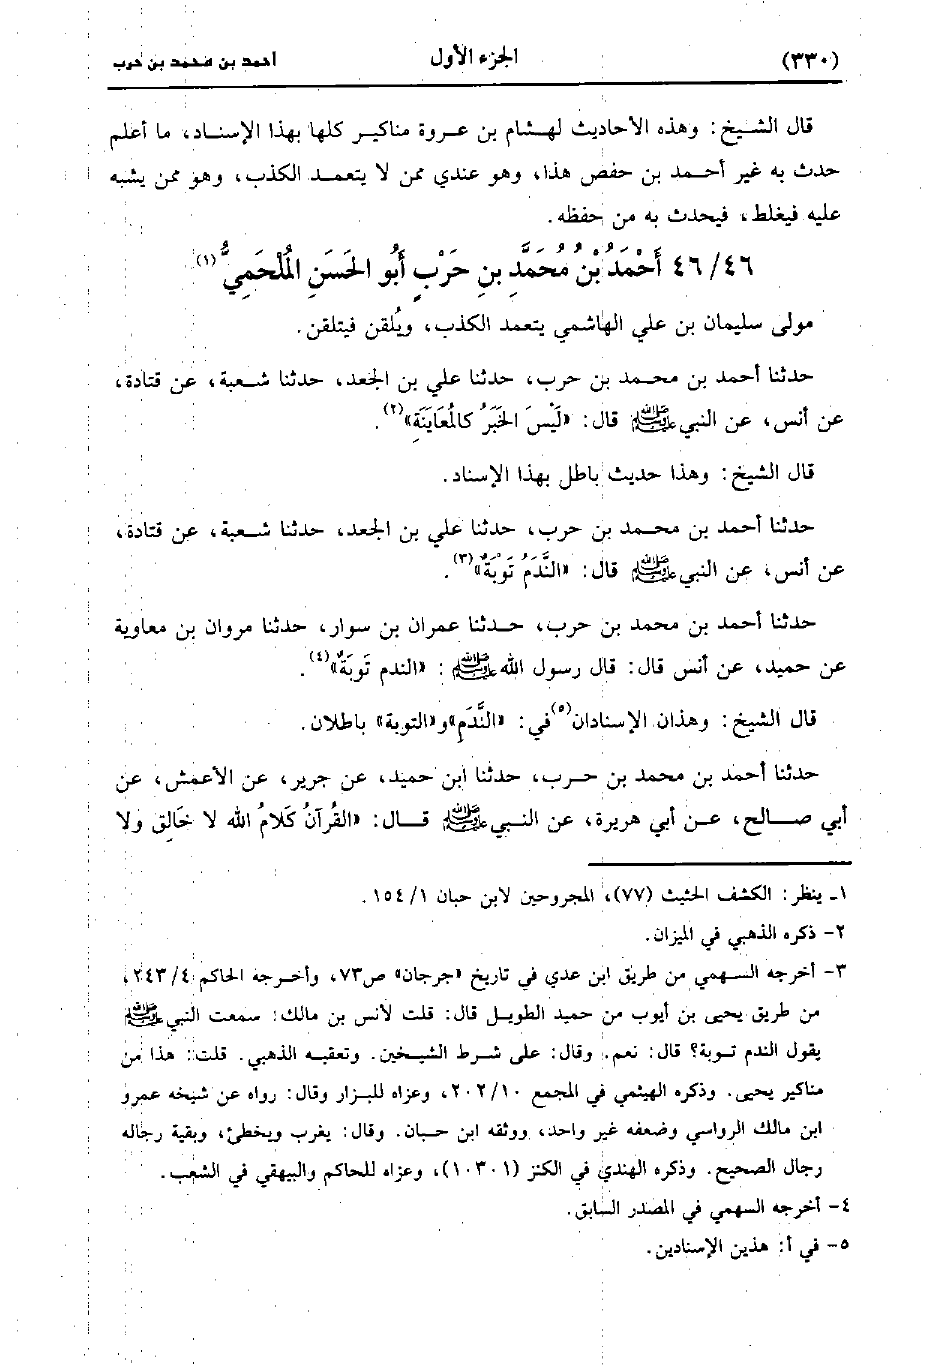 (٣٣٠) الجزء الأول أحمد بن محمد بن حرب
قال الشيخ: وهذه الأحاديث لهشام بن عروة مناكير كلها بهذا الإسناد، ما أعلم
حدث به غير أحمد بن حفص هذا، وهو عندي ممن لا يتعمد الكذب، وهو ممن يشبه
عليه فيغلط، فيحدث به من حفظه.
٤٦/ ٤٦ أَحْمَدُ بْنُ مُحَمَّدِ بنِ حَرْبٍ أَبُو الحَسَنِ المُلْحَمِيُّ (١)
مولى سليمان بن علي الهاشمي يتعمد الكذب، ويُلقن فيتلقن.
حدثنا أحمد بن محمد بن حرب، حدثنا علي بن الجعد، حدثنا شعبة، عن قتادة،
عن أنس، عن النبي ﷺ قال: «لَيْسَ الخَبَرُ كَالمُعَايَنَةِ»(٢).
قال الشيخ: وهذا حديث باطل بهذا الإسناد.
حدثنا أحمد بن محمد بن حرب، حدثنا علي بن الجعد، حدثنا شعبة، عن قتادة،
عن أنس، عن النبي ﷺ قال: «النَّدَمُ تَوْبَةٌ»(٣).
حدثنا أحمد بن محمد بن حرب، حدثنا عمران بن سوار، حدثنا مروان بن معاوية
عن حميد، عن أنس قال: قال رسول الله ﷺ: «الندم تَوبَةٌ»(٤).
قال الشيخ: وهذان الإسنادان(٥)في: «النَّدَمِ»و«التوبة» باطلان.
حدثنا أحمد بن محمد بن حرب، حدثنا ابن حميد، عن جرير، عن الأعمش، عن
أبي صالح، عن أبي هريرة، عن النبي ﷺ قال: «القُرآنُ كَلامُ الله لا خَالِق ولا
١ـ ينظر: الكشف الحثيث (٧٧)، المجروحين لابن حبان ١/ ١٥٤.
٢- ذكره الذهبي في الميزان.
٣- أخرجه السهمي من طريق ابن عدي في تاريخ «جرجان» ص٧٣، وأخرجه الحاكم ٤/ ٢٤٣،
من طريق يحيى بن أيوب من حميد الطويل قال: قلت لأنس بن مالك: سمعت النبي ﷺ
يقول الندم توبة؟ قال: نعم. وقال: على شرط الشيخين. وتعقبه الذهبي. قلت: هذا من
مناكير يحيى. وذكره الهيثمي في المجمع ١٠/ ٢٠٢، وعزاه للبزار وقال: رواه عن شيخه عمرو
ابن مالك الرواسي وضعفه غير واحد، ووثقه ابن حبان. وقال: يغرب ويخطئ، وبقية رجاله
رجال الصحيح. وذكره الهندي في الكنز (١٠٣٠١)، وعزاه للحاكم والبيهقي في الشعب.
٤- أخرجه السهمي في المصدر السابق.
٥- في أ: هذين الإسنادين.